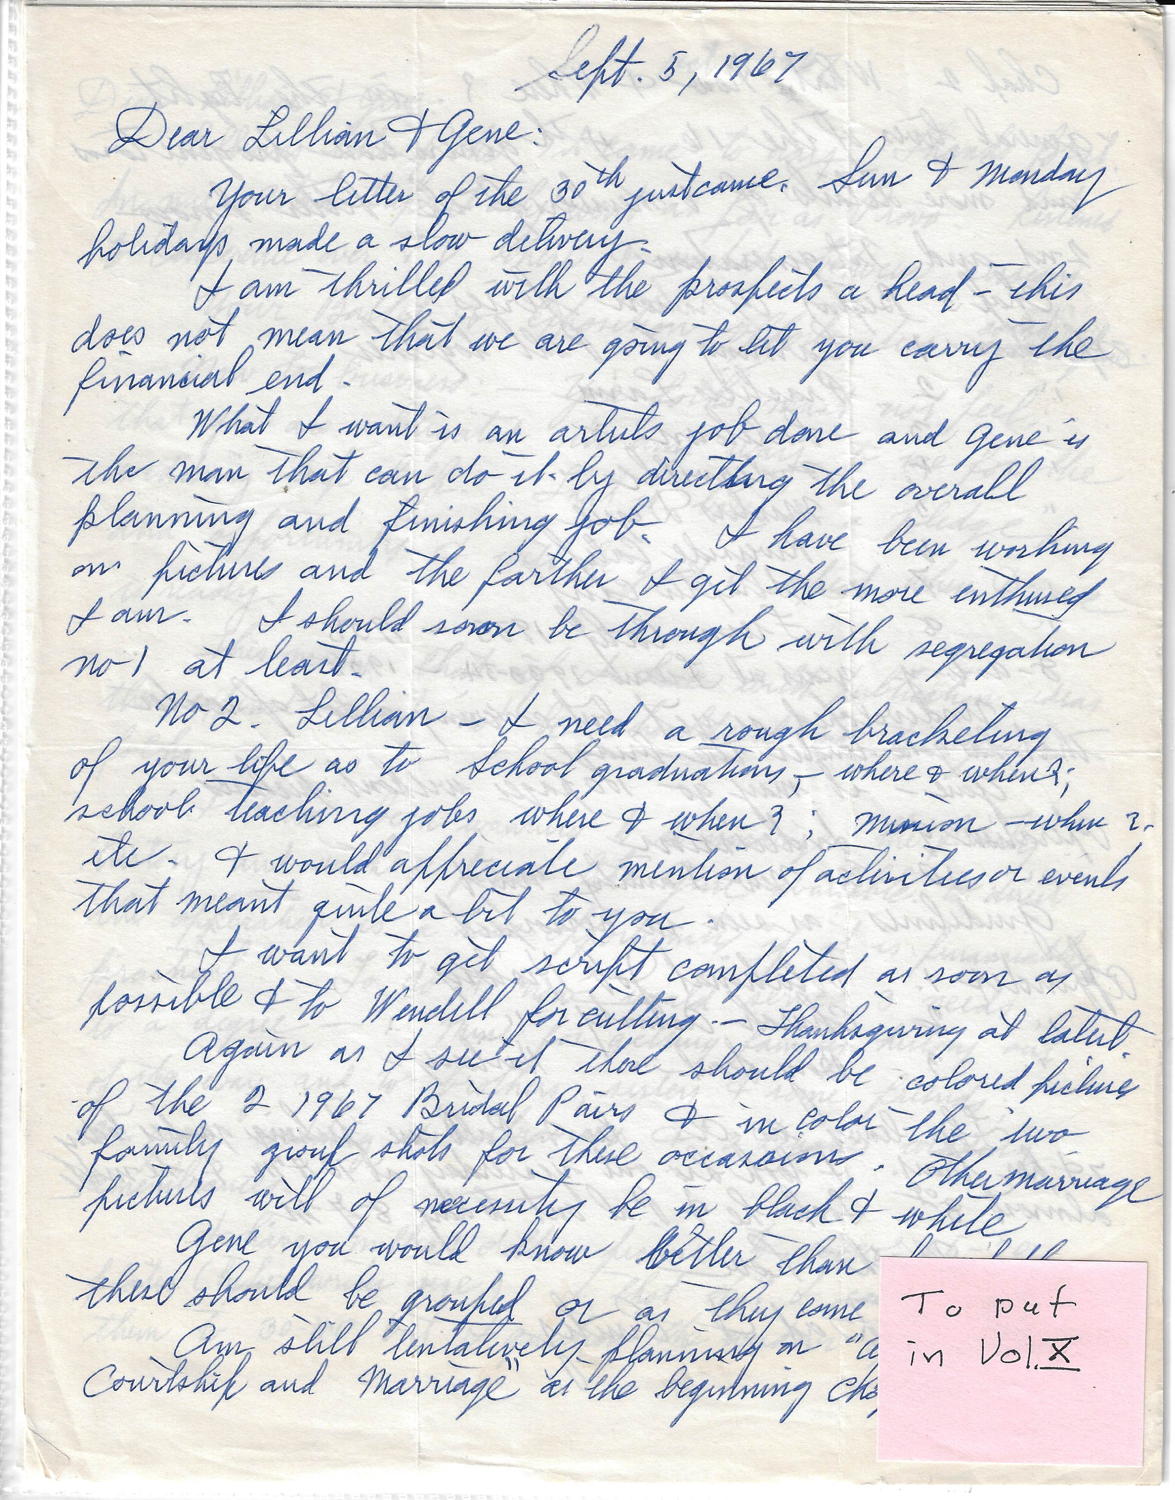 Sept. 5, 1967
Dear Lillian & Gene:
Your letter of the 30th just came. Sun & Monday
holidays made a slow delivery.
I am thrilled with the prospects a head – this
does not mean that we are going to let you carry the
financial end.
What I want is an artists job done and Gene is
the man that can do it - by directing the overall
planning and finishing job. I have been working
on pictures and the farther I get the more enthused
I am. I should soon be through with segregation
no 1 at least.
No 2. Lillian – I need a rough bracketing
of your life as to School graduations, – where & when?;
school teaching jobs where & when?; mission – when?,
etc. I would appreciate mention of activities or events
that meant quite a bit to you.
I want to get script completed as soon as
possible & to Wendell for cutting. – Thanksgiving at latest.
Again as I see it there should be colored picture
of the 2 1967 Bridal Pairs & in color the two
family group shots for these occassions. Other marriage
pictures will of necessity be in black & white
Gene you would know better than
these should be grouped or as they come
Am still tentatively planning on
Courtship and Marriage" as the beginning
To put
in Vol. X